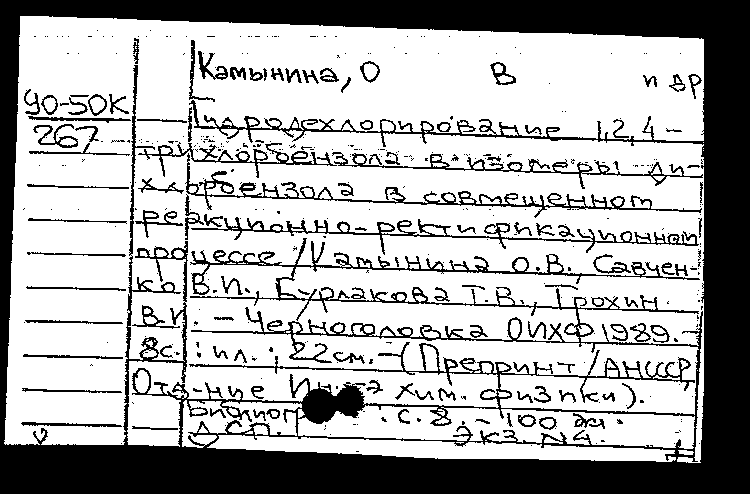 Камынина, О В и др
90-50К
267
Гидродехлорирование 1,2,4-
трихлорбензола в изомеры ди-
хлорбензола в совмещенном
реакционно-ректификационном
процессе / Камынина О.В., Савчен-
ко В.И., Бурлакова Т.В., Трохин
В.И. - Черноголовка ОИХФ 1989.-
8с. : ил. ; 22см. - (Препринт / АНСССР,
Отд-ние Ин-та хим. физики).
Библиогр : с. 8. - 100 экз.
ДСП. Экз. N4.